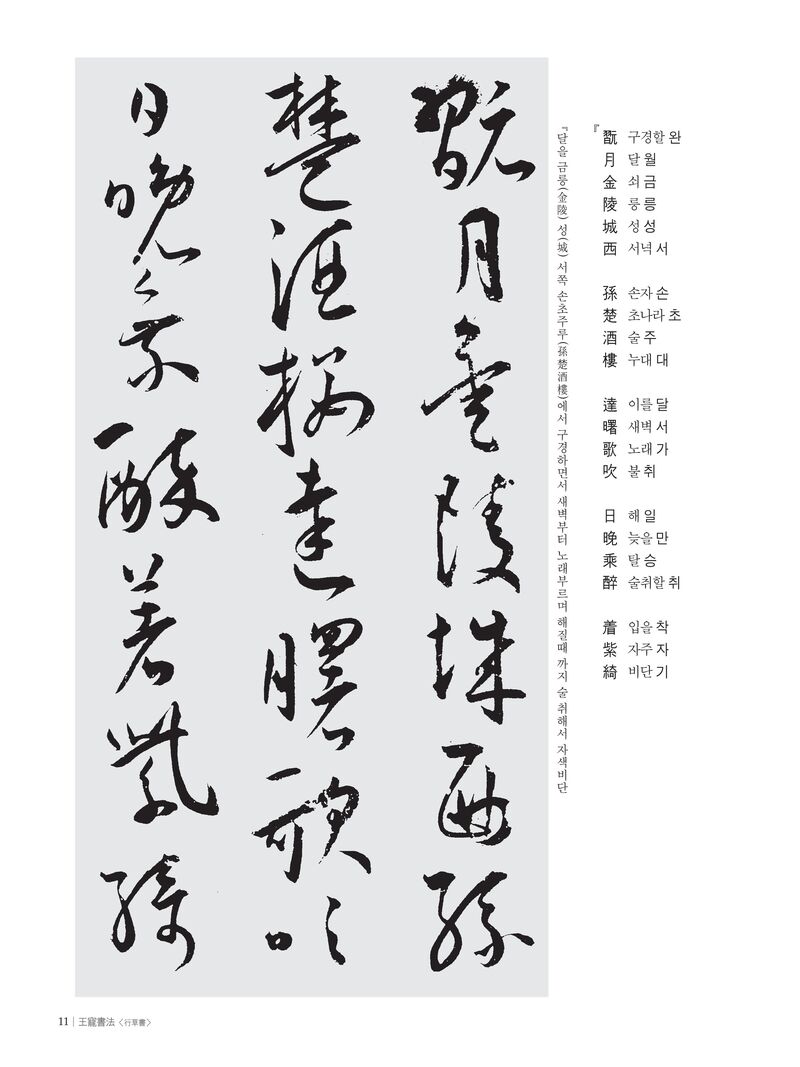 翫月金陵城西孫
楚酒樓達曙歌吹
日晩乘醉着紫綺
『달을 금릉(金陵) 성(城) 서쪽 손초주루(孫楚酒樓)에서 구경하면서 새벽부터 노래부르며 해질때 까지 술 취해서 자색비단
『
翫 구경할 완
月 달 월
金 쇠 금
陵 릉 릉
城 성 성
西 서녘 서
孫 손자 손
楚 초나라 초
酒 술 주
樓 누대 대
達 이를 달
曙 새벽 서
歌 노래 가
吹 불 취
日 해 일
晩 늦을 만
乘 탈 승
醉 술취할 취
着 입을 착
紫 자주 자
綺 비단 기
11 | 王寵書法〈行草書〉